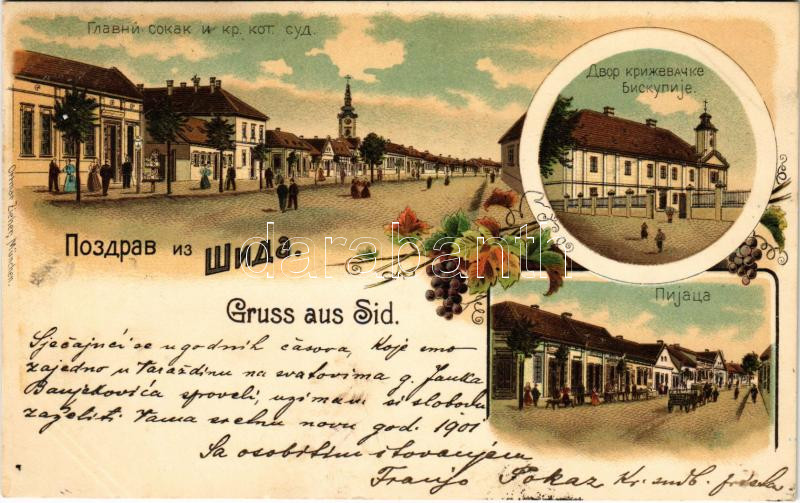 Главнӣ сокак и кр. кот. суд.
Двор крижевачке
Бискупије.
Поздрав из Шида.
darabanti
Пијаца
Gruss aus Sid.
Ottmar Zieher, München.
Sjećajući se ugodnih časova, koje smo
zajedno u Varaždinu na svatovima g. Janka
Banjekovića sproveli, uzimam si slobodu
zaželiti Vama sretnu novu god. 1901
Sa osobitim štovanjem
Franjo Pokaz Kr. sudb.